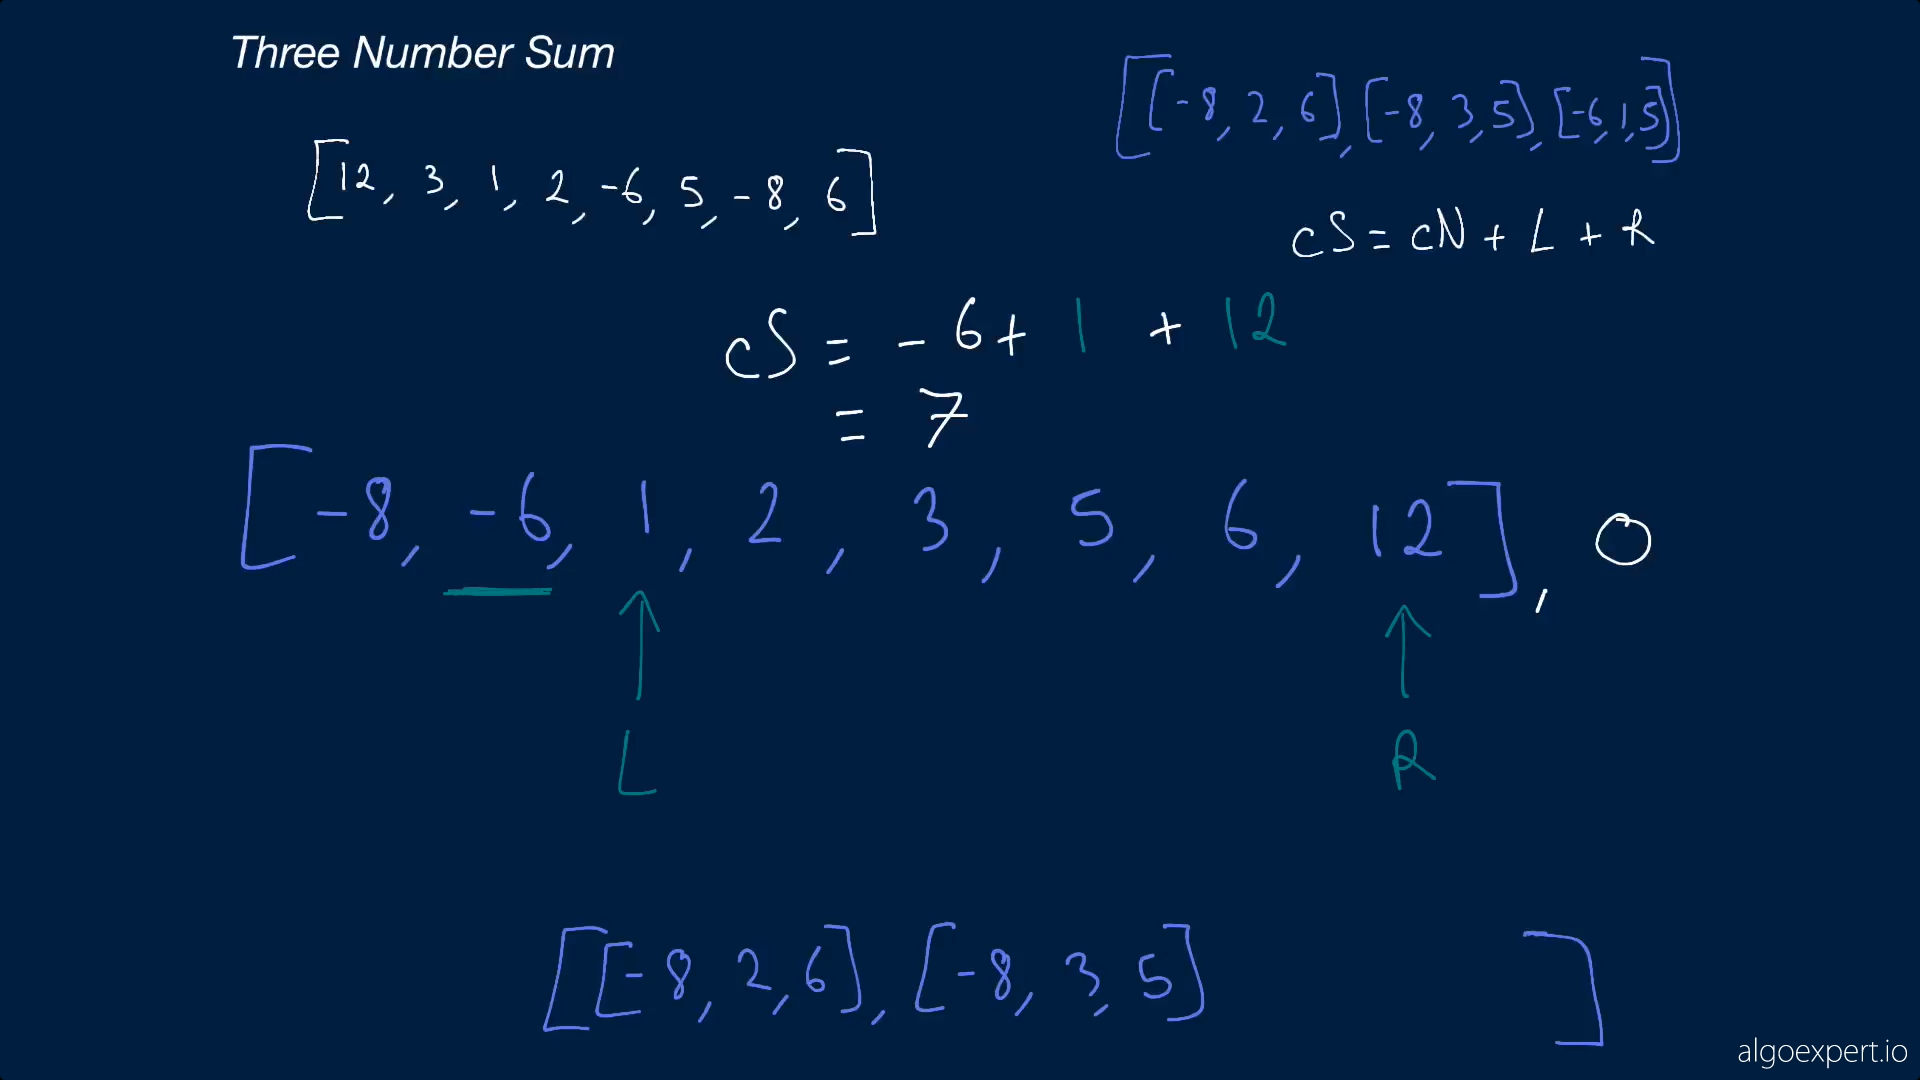 Three Number Sum
[[-8, 2, 6], [-8, 3, 5], [-6, 1, 5]]
[12, 3, 1, 2, -6, 5, -8, 6]
cS = cN + L + R
cS = -6 + 1 + 12
= 7
[-8, -6, 1, 2, 3, 5, 6, 12], 0
L R
[[-8, 2, 6], [-8, 3, 5] ]
algoexpert.io